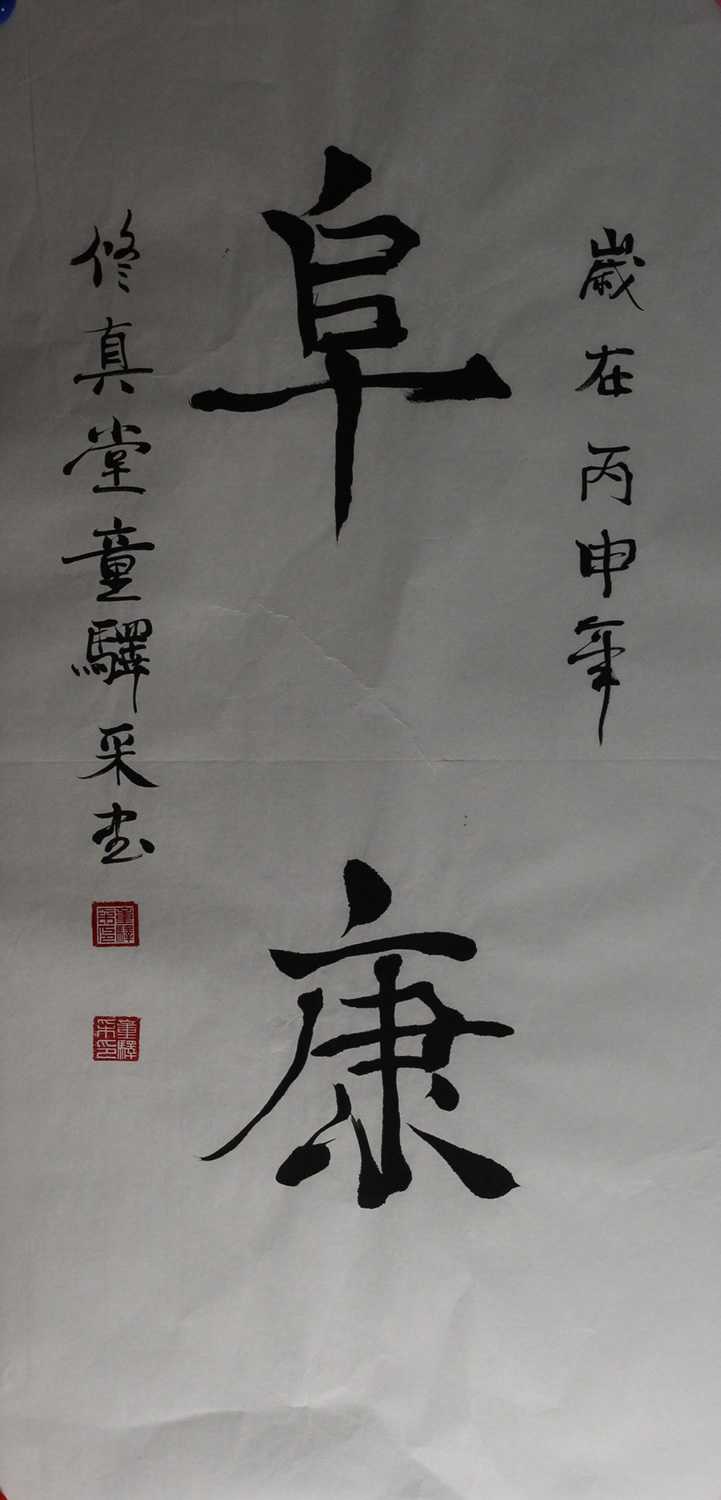 歲在丙申年
阜康
修真堂童驛采書
童驛采印